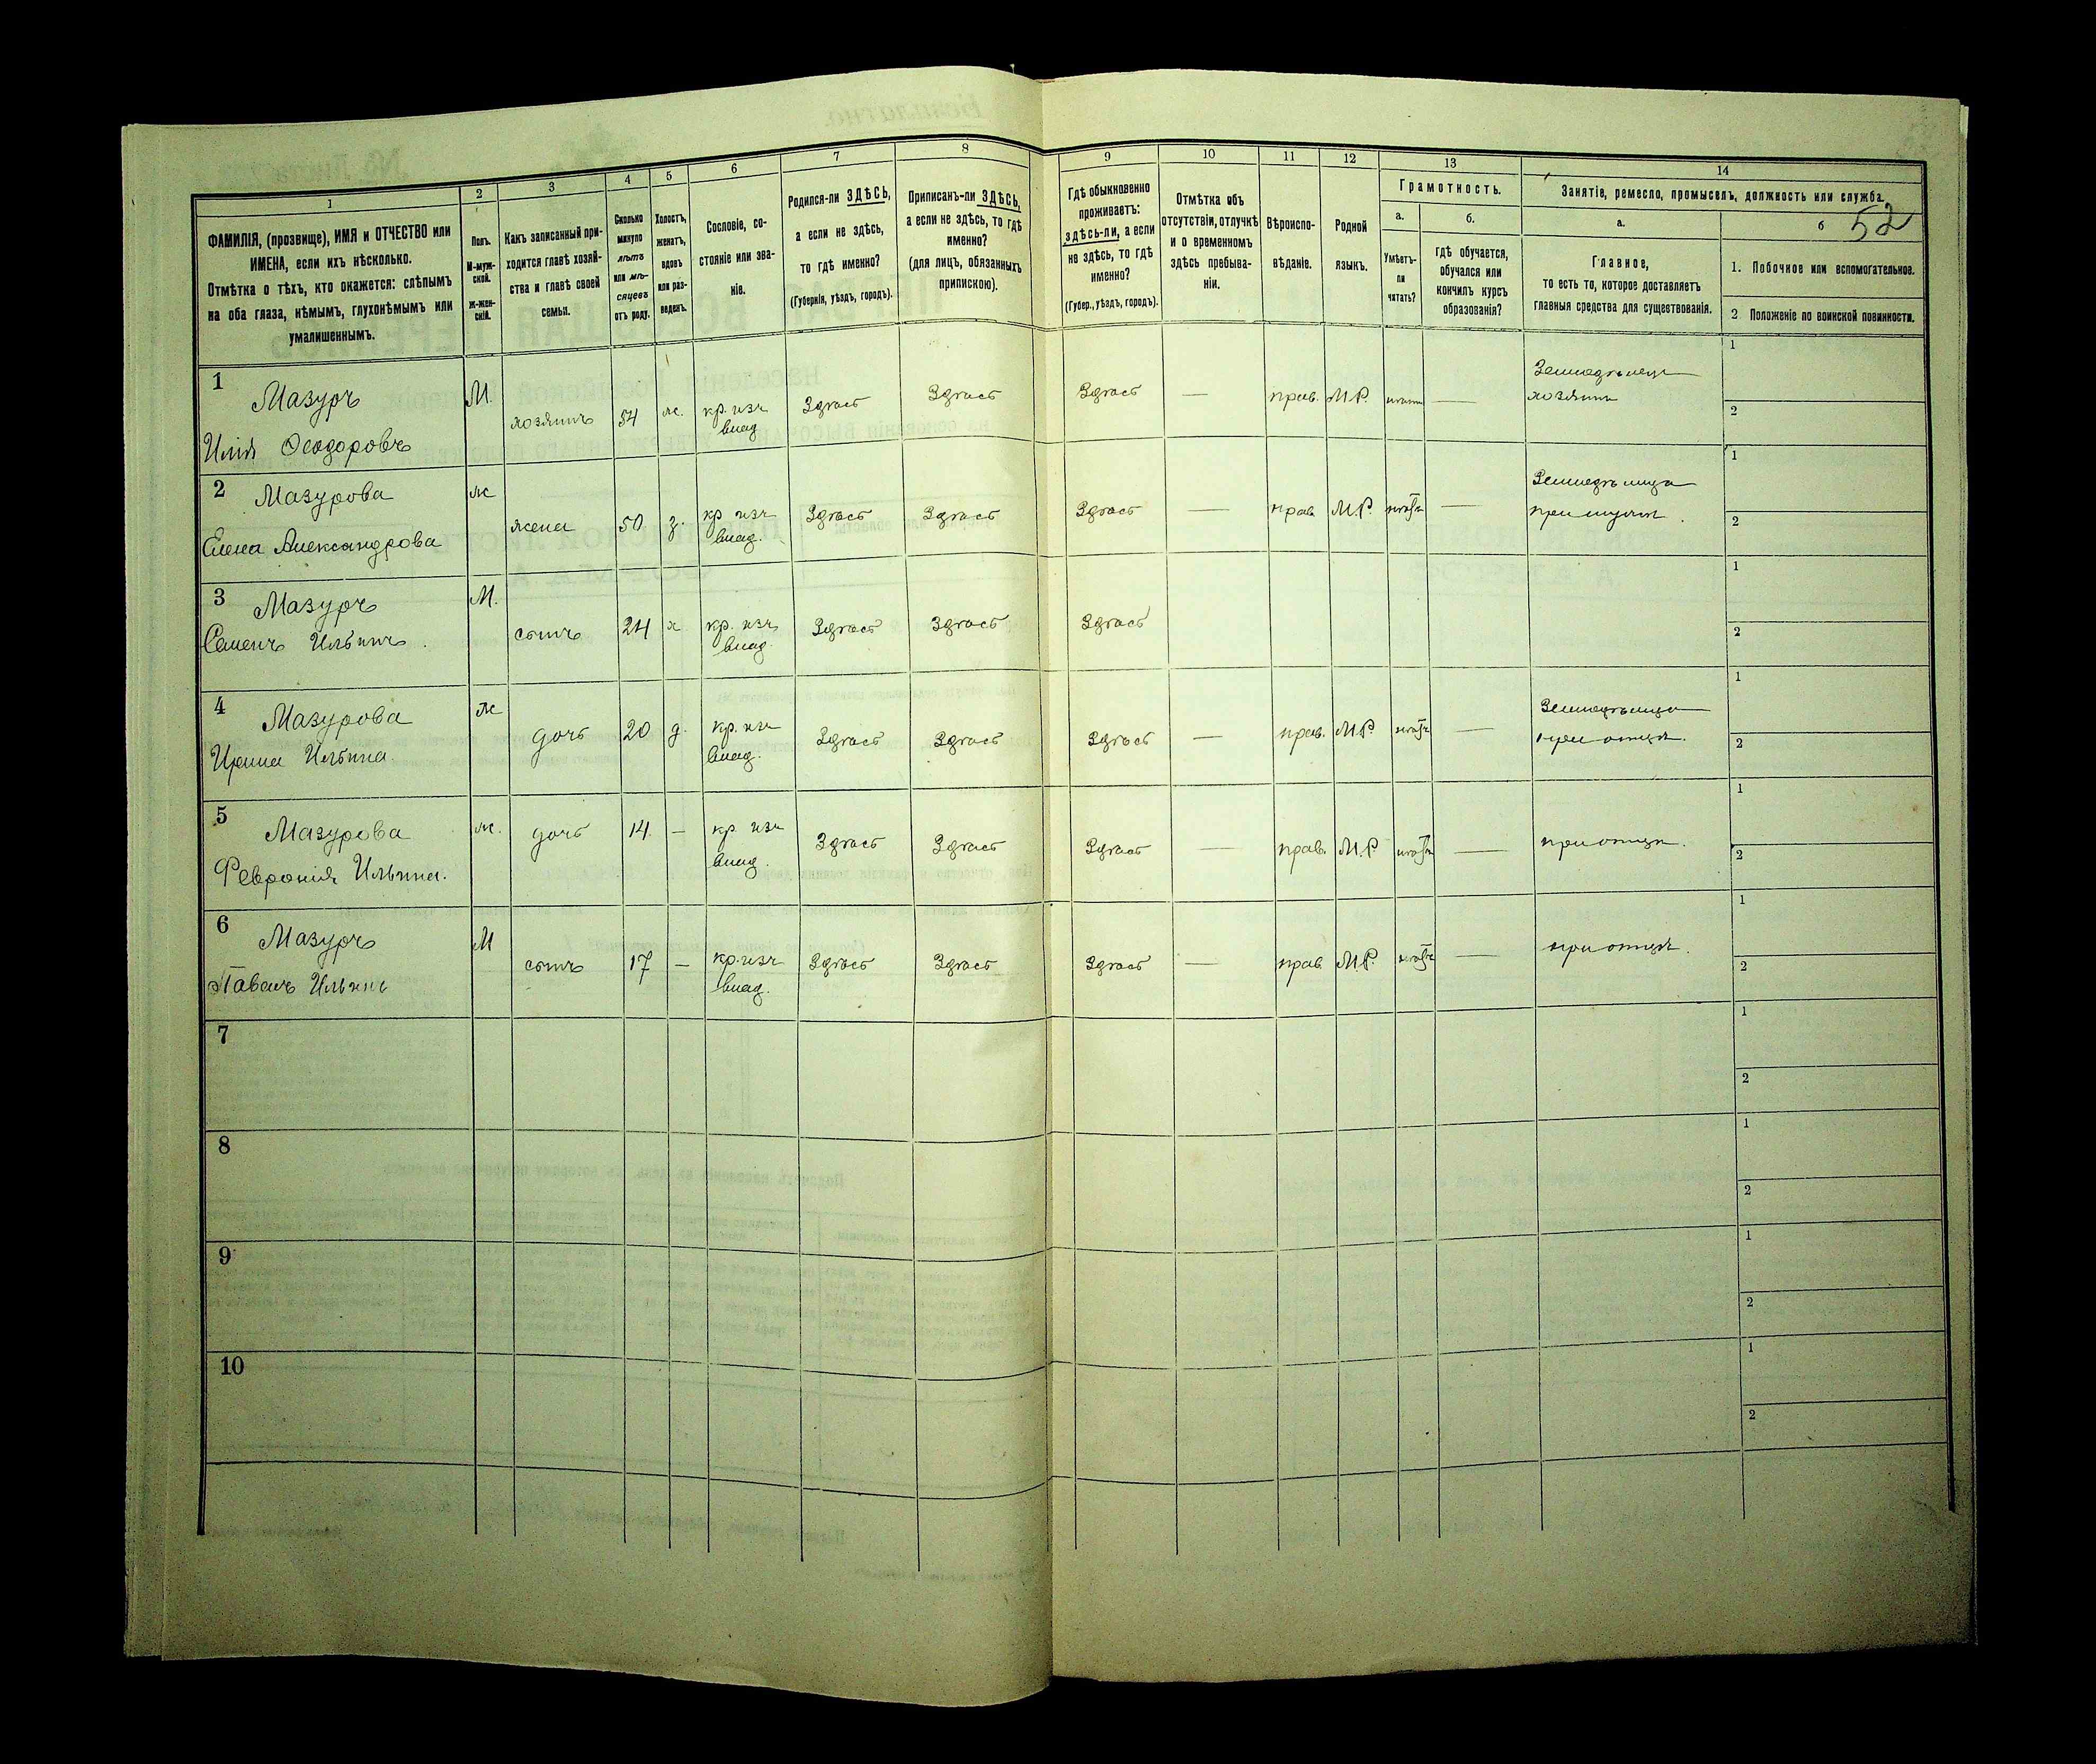 1
2
3
4
5
6
7
8
ФАМИЛІЯ, (прозвище), ИМЯ и ОТЧЕСТВО или
ИМЕНА, если ихъ нѣсколько.
Отмѣтка о тѣхъ, кто окажется: слѣпымъ
на оба глаза, нѣмымъ, глухонѣмымъ или
умалишеннымъ.
Полъ.
М-муж-
ской.
Ж-жен-
скій.
Какъ записанный при-
ходится главѣ хозяй-
ства и главѣ своей
семьи.
Сколько
минуло
лѣтъ
или мѣ-
сяцевъ
отъ роду.
Холостъ,
женатъ,
вдовъ
или раз-
веденъ.
Сословіе, со-
стояніе или зва-
ніе.
Родился-ли ЗДѢСЬ,
а если не здѣсь,
то гдѣ именно?
(Губернія, уѣздъ, городъ).
Приписанъ-ли ЗДѢСЬ,
а если не здѣсь, то гдѣ
именно?
(для лицъ, обязанныхъ
припискою).
9
10
11
12
13
14
Гдѣ обыкновенно
проживаетъ:
здѣсь-ли, а если
не здѣсь, то гдѣ
именно?
(Губер., уѣздъ, городъ).
Отмѣтка объ
отсутствіи, отлучкѣ
и о временномъ
здѣсь пребыва-
ніи.
Вѣроиспо-
вѣданіе.
Родной
языкъ.
Грамотность.
а.
Умѣетъ-
ли
читать?
б.
гдѣ обучается,
обучался или
кончилъ курсъ
образованія?
Занятіе, ремесло, промыселъ, должность или служба.
52
а.
Главное,
то есть то, которое доставляетъ
главныя средства для существованія.
б
1. Побочное или вспомогательное.
2 Положеніе по воинской повинности.
1
Мазуръ
Илія Ѳеодоровъ
М.
хозяинъ
54
ж.
кр. изъ
влад
Здѣсь
Здѣсь
Здѣсь
—
прав.
М.Р.
—
Земледѣлецъ
хозяинъ
1
2
2
Мазурова
Елена Александрова
ж
жена
50
з.
кр изъ
влад.
Здѣсь
Здѣсь
Здѣсь
—
прав.
М.Р.
нѣтъ
—
Земледѣлица
при мужѣ.
1
2
3
Мазуръ
Семенъ Ильинъ.
М.
сынъ
24
х.
кр. изъ
влад.
Здѣсь
Здѣсь
Здѣсь
1
2
4
Мазурова
Ирина Ильина
ж
дочь
20
д.
кр. изъ
влад.
Здѣсь
Здѣсь
Здѣсь
—
прав.
М.Р.
нѣтъ
—
Земледѣлица
при отцѣ.
1
2
5
Мазурова
Февронія Ильина.
ж.
дочь
14.
—
кр. изъ
влад.
Здѣсь
Здѣсь
Здѣсь
—
прав.
М.Р
нѣтъ
—
при отцѣ.
1
2
6
Мазуръ
Павелъ Ильинъ
М
сынъ
17
—
кр. изъ
влад.
Здѣсь
Здѣсь
Здѣсь
—
прав
М.Р.
нѣтъ
—
при отцѣ.
1
2
7
1
2
8
1
2
9
1
2
10
1
2